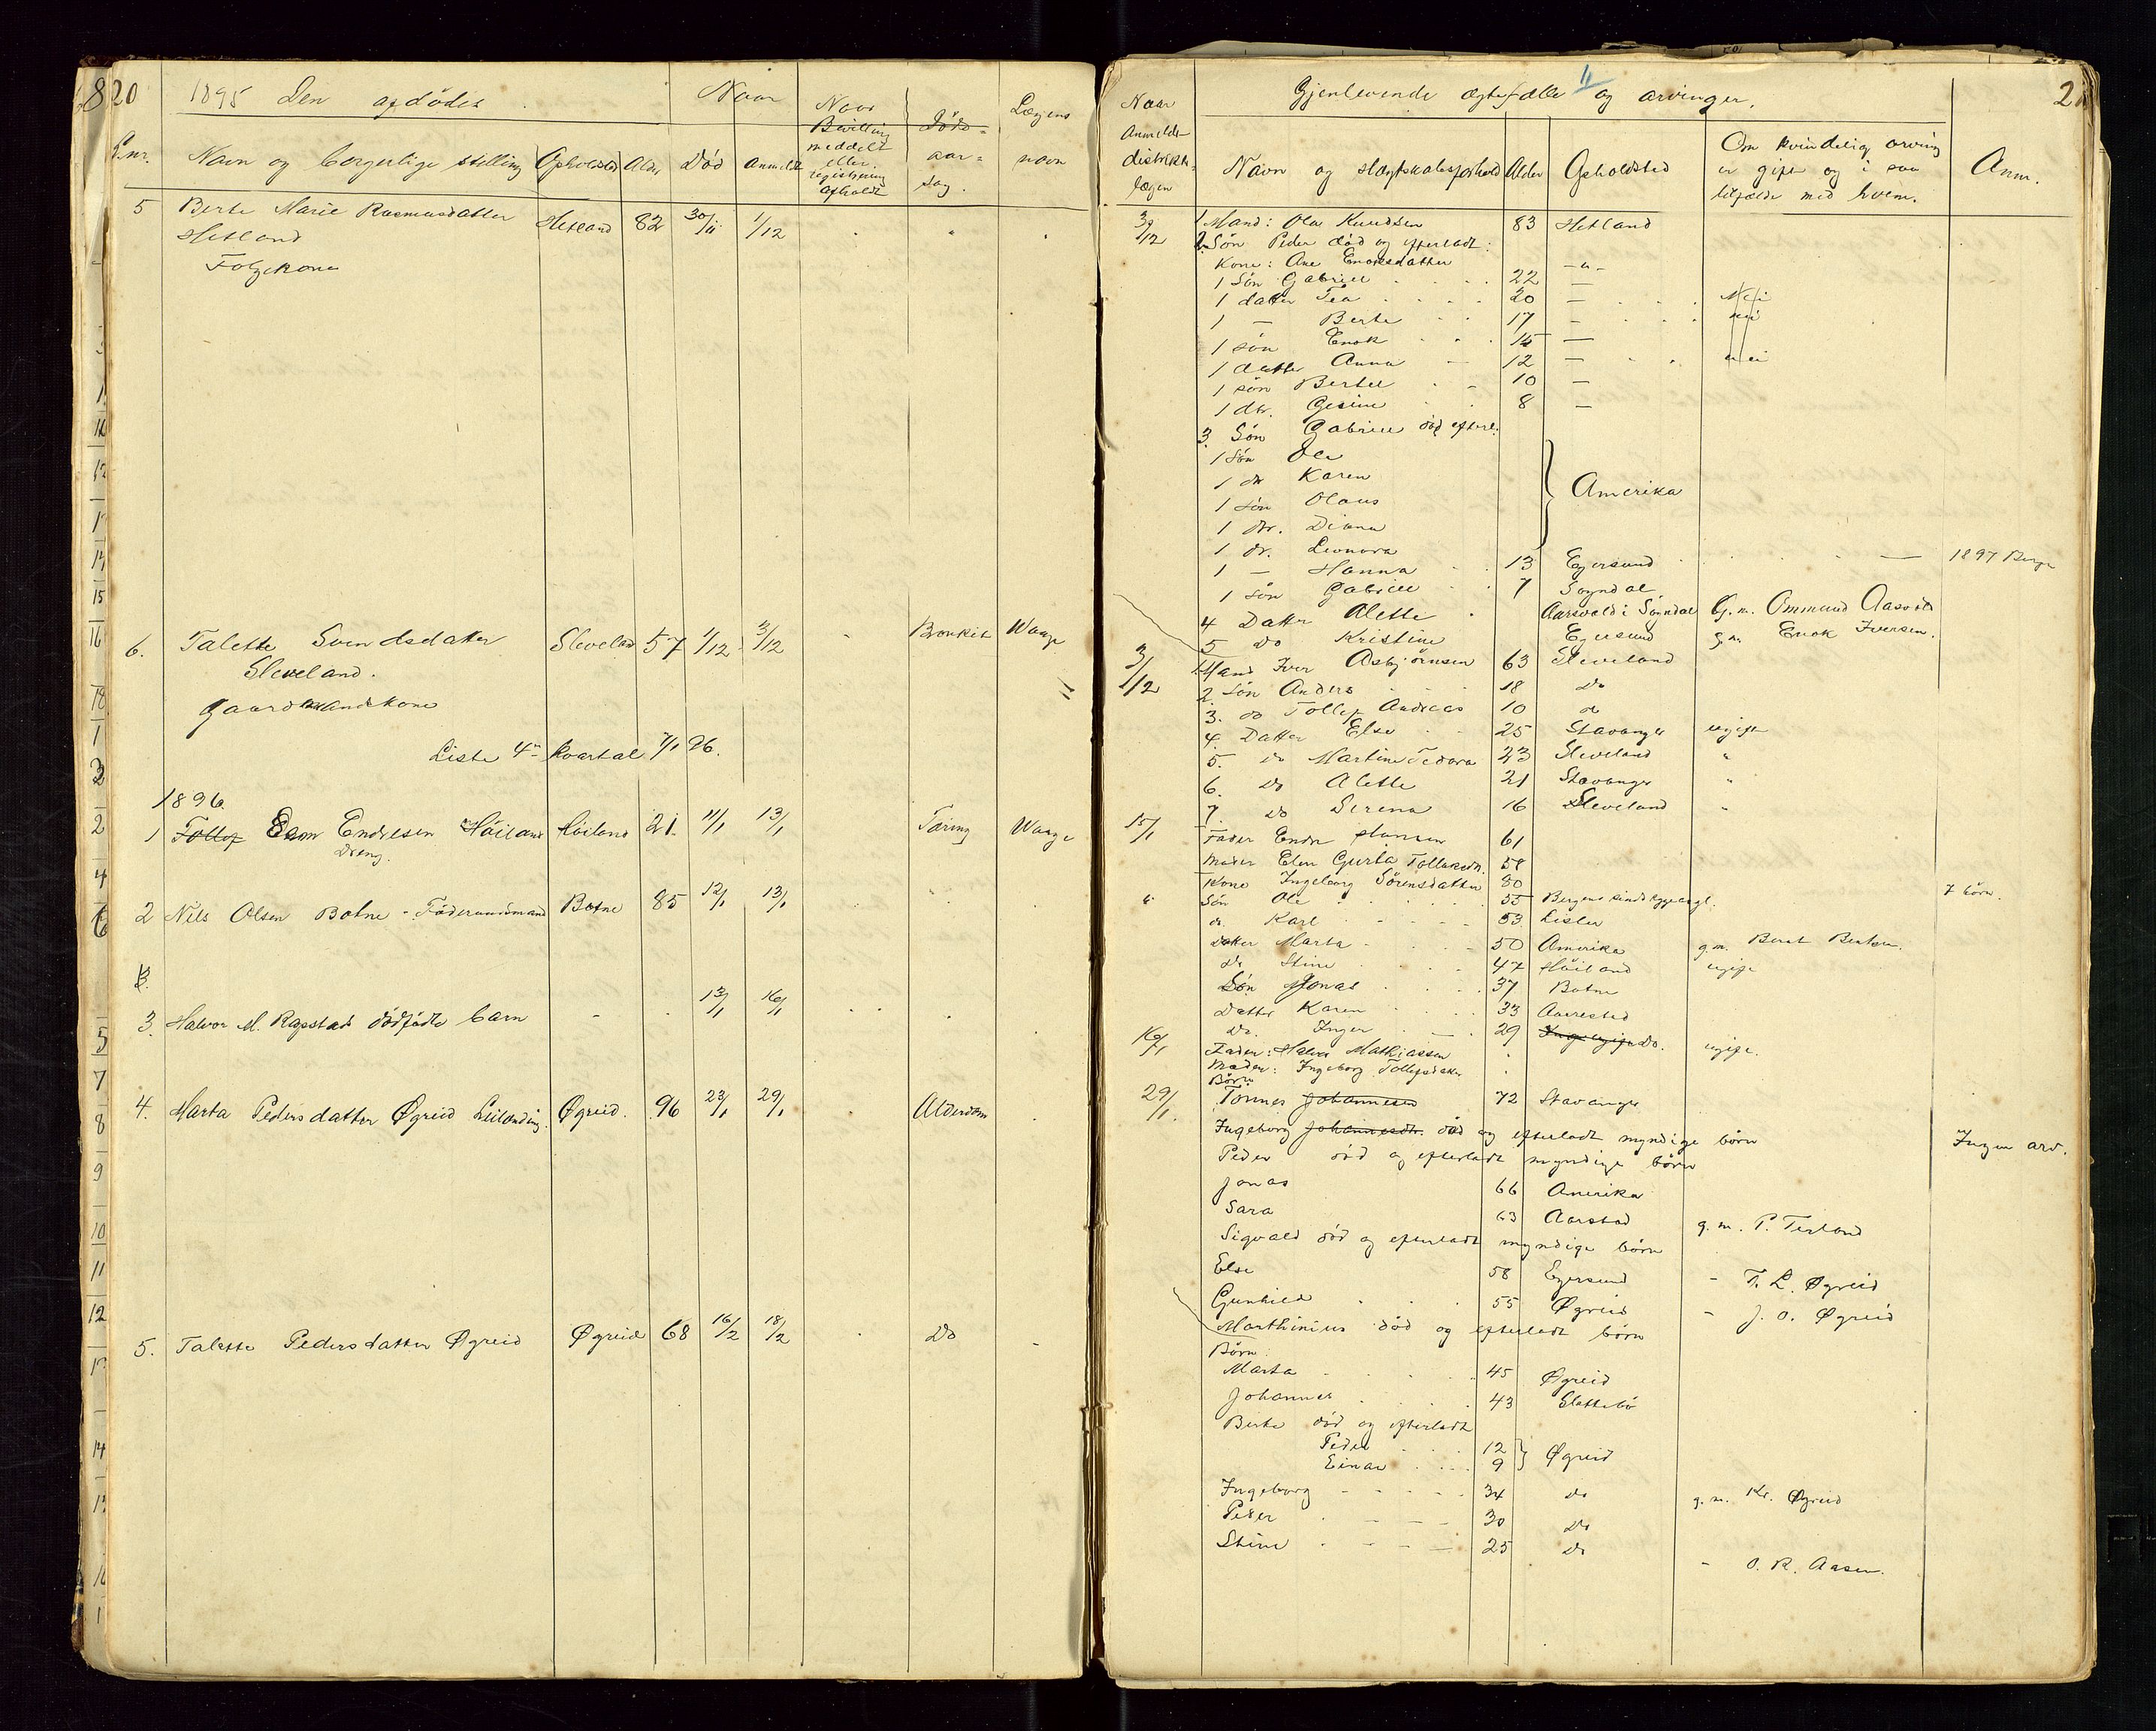 20
1895 Den afdödes
Naar
Naar Bevilling meddelt eller registrering afholdt
Döds-aar=sag.
Lægens navn
L.nr. Navn og borgerlige stilling Opholdsted Alder Död Anmeldt
5 Berte Marie Rasmusdatter Hetland 82 30/11 1/12
Hetland
Folgekone
6. Talette Svendsdatter Sleveland 57 1/12 3/12 Bronkit Waage
Sleveland.
Gaardmandskone
Liste 4de kvartal 7/1 96.
1896
1 Tollef Endresen Höiland Höiland 21 11/1 13/1 Tæring Waage
Dreng.
2 Nils Olsen Botne - Föderaadsmand Botne 85 12/1 13/1
3 Halvor M. Rapstad dödfödte barn - 13/1 16/1
4. Marta Pedersdatter Øgreid Leilænding Øgreid. 96 23/1 29/1 Alderdom
5. Talette Pedersdatter Øgreid Øgreid 68 16/2 18/2 Do
Naar Anmeldt distriktslægen
Gjenlevende ægtefælle og arvinger.
Navn og slægtskabsforhold Alder Opholdsted
Om kvindelig arving er gift og i saa tilfælde med hvem.
Anm.
3/12 1. Mand: Ola Knudsen 83 Hetland
2. Søn Peder död og efterladt:
Kone: Ane Enoksdatter -"-
1 Sön Gabriel 22 —
1 datter Tea 20 — Nei
1 — Berte 17 — nei
1 sön Enok 15 —
1 datter Anna 12 — nei
1 sön Bertel 10 —
1 dtr. Gesine 8 —
3. Sön Gabriel död efterl:
1 Sön Ole
1 dr Karen
1 sön Olaus Amerika
1 dtr. Diana
1 dr. Leonora
1 — Hanna 13 Egersund — 1897 Berge
1 sön Gabriel 7 Sogndal
4 Datter Alette Aarsvold i Sogndal G. m. Ommund Aasvold
5 do Kristine Egersund g m. Enok Iversen.
3/12 1. Mand Iver Asbjörnsen 63 Sleveland
2. Sön Anders 18 do
3. do Tollef Andreas 10 d
4. Datter Else 25 Stavanger ugift
5. do Martine Tedora 23 Sleveland "
6. Do Alette 21 Stavanger "
7. Do Serena 16 Sleveland "
15/1 Fader Endre Hansen 61
Moder Elen Gurta Tollaksdtr. 58
Kone Ingeborg Sörensdatter 80
" Sön Ole 55 7 börn.
do Karl 53 Lister
Datter Marta 50 Amerika g m. Bernt Bentsen.
do Stine 47 Höiland ugift
Sön Jonas 37 Botne
Datter Karen 33 Aarestad
Do. Inger 29 do. ugift.
16/1 Fader: Halvor Mathiassen
Moder: Ingeborg Tollefsdatter
29/1. Börn
Tönnes Johannesen 72 Stavanger
Ingeborg Johannesdtr. död og efterladt myndige börn Ingen arv.
Peder död og efterladt myndige börn
Jonas 66 Amerika
Sara 63 Aarstad g. m. P. Terland
Sigvald död og efterladt myndige börn
Else 58 Egersund - T. L. Øgreid
Gunhild 55 Øgreid - J. O. Øgreid
Marthinius död og efterladt börn
Börn
Marta 45 Øgreid
Johannes 43 Slettebö
Berte död og efterladt
Peder 12
Einar 9 Øgreid
Ingeborg 34 do g. m. Kr. Øgreid
Peder 30 Do
Stine 25 Do - O. R. Aasen.